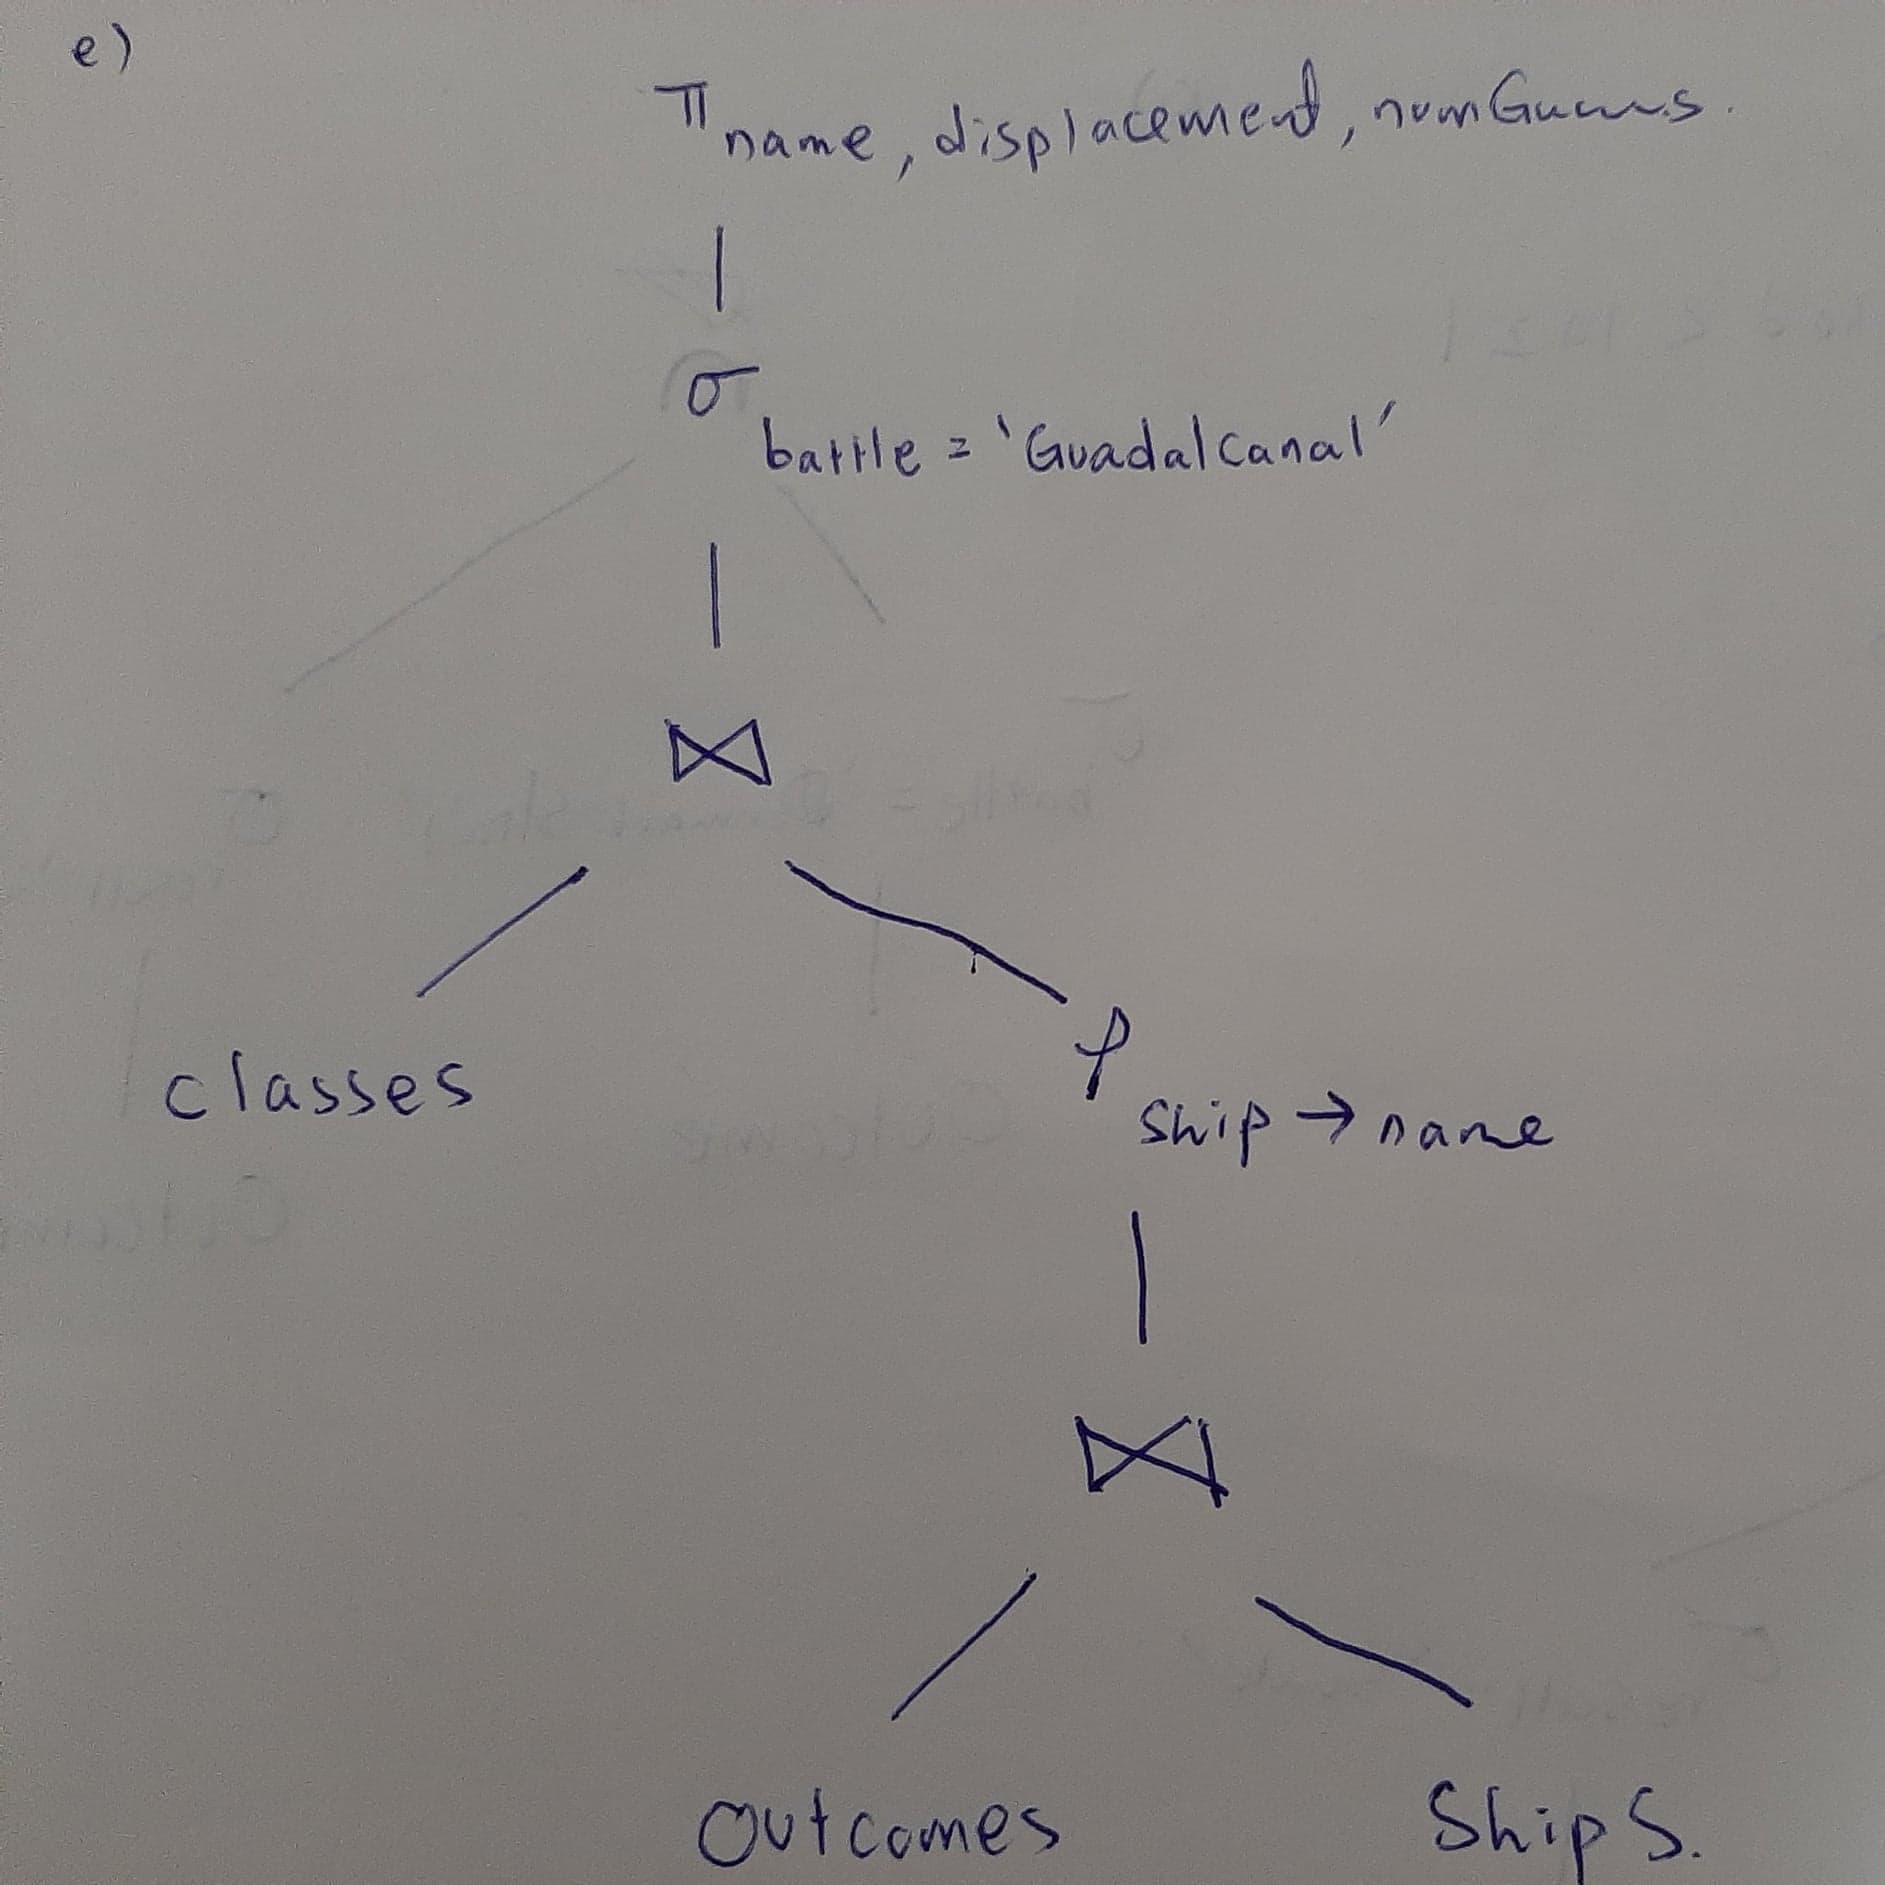 e)
π name, displacement, numGuns.
σ battle = 'Guadalcanal'
⋈
classes
ρ ship → name
⋈
Outcomes Ships.